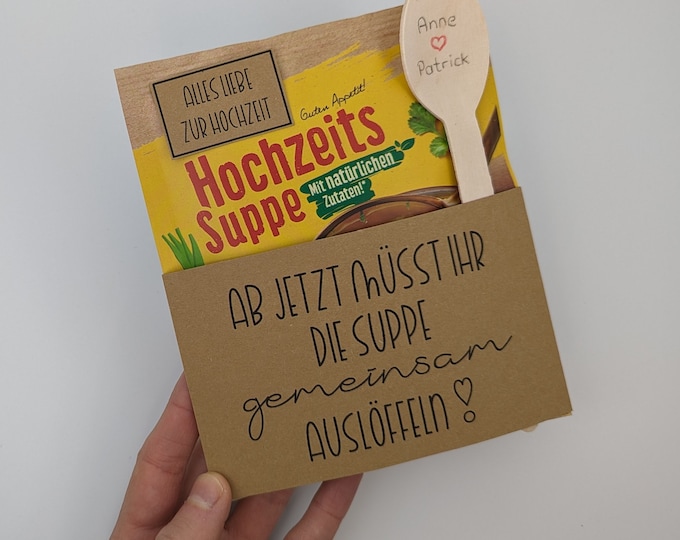 Anne
♡
Patrick
ALLES LIEBE
ZUR HOCHZEIT
Guten Appetit!
Hochzeits
Suppe
Mit natürlichen
Zutaten!*
AB JETZT MÜSST IHR
DIE SUPPE
gemeinsam
AUSLÖFFELN!